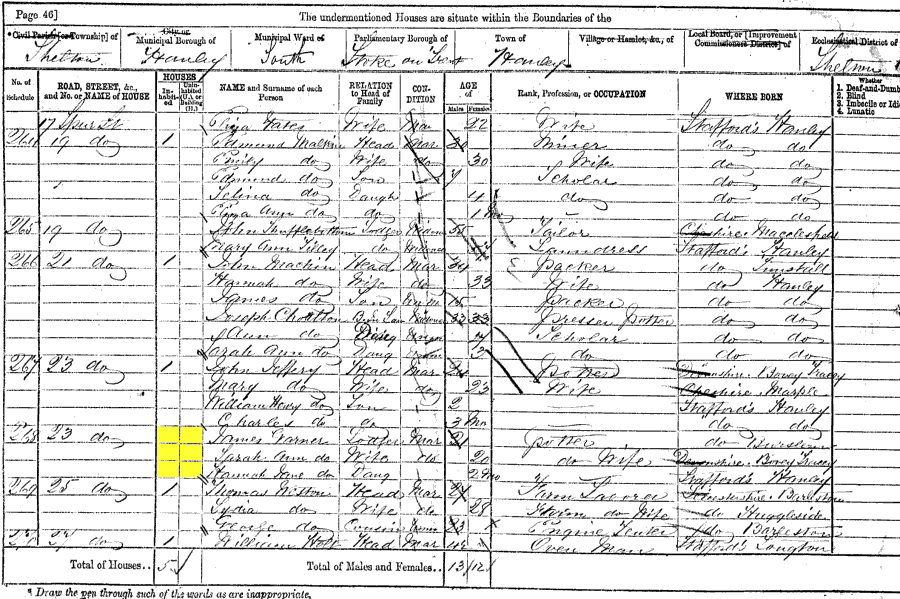 Page 46] The undermentioned Houses are situate within the Boundaries of the
Civil Parish [or Township] of City or Municipal Borough of Municipal Ward of Parliamentary Borough of Town of Village or Hamlet, &c., of Local Board, or [Improvement Commissioners District] of Ecclesiastical District of
Shelton Hanley South Stoke on Trent Hanley Shelton
No. of Schedule ROAD, STREET, &c., and No. or NAME of HOUSE HOUSES In-habited Unin-habited (U.), or Building (B.) NAME and Surname of each Person RELATION to Head of Family CON-DITION AGE of Males Females Rank, Profession, or OCCUPATION WHERE BORN Whether 1. Deaf-and-Dumb 2. Blind 3. Imbecile or Idi 4. Lunatic
17 Spur St Eliza Yates Wife Mar 22 Wife Stafford's Hanley
264 19 do 1 Edmund Malkin Head Mar Miner do do
Emily do Wife do 30 Wife do do
Edmund do Son 7 Scholar do do
Selina do Daugh 4 do do do
Eliza Ann do do 1 Mo do do
265 19 do John Lodger Tailor Cheshire Macclesfield
Mary Ann Tilley do Laundress Stafford's Hanley
266 21 do 1 John Mackin Head Mar 34 Packer do Tunstall
Hannah do Wife do 33 Wife do Hanley
James do Son 15 Packer do do
Joseph 33 Presser Potter do do
Ann do Daug 7 Scholar do do
Sarah Ann do Daug do do do
267 23 do 1 John Jeffery Head Mar Potter Bovey Tracey
Mary do Wife do 23 Wife Cheshire Marple
William Henry do Son 2 Stafford's Hanley
Charles do do 3 Mo do do
268 23 do James Garner Lodger Mar 21 Potter do Burslem
Sarah Ann do Wife do 20 do Wife Bovey Tracey
Hannah Jane do Daug Mo Stafford's Hanley
269 25 do 1 Thomas Weston Head Mar Farm Barlestone
Lydia do Wife do 28 do Wife do
George do 23 Engine do Barlestone
27 do 1 William Holt Head Mar Oven Man Stafford's Longton
Total of Houses.. 5 Total of Males and Females.. 13 12
¶ Draw the pen through such of the words as are inappropriate.